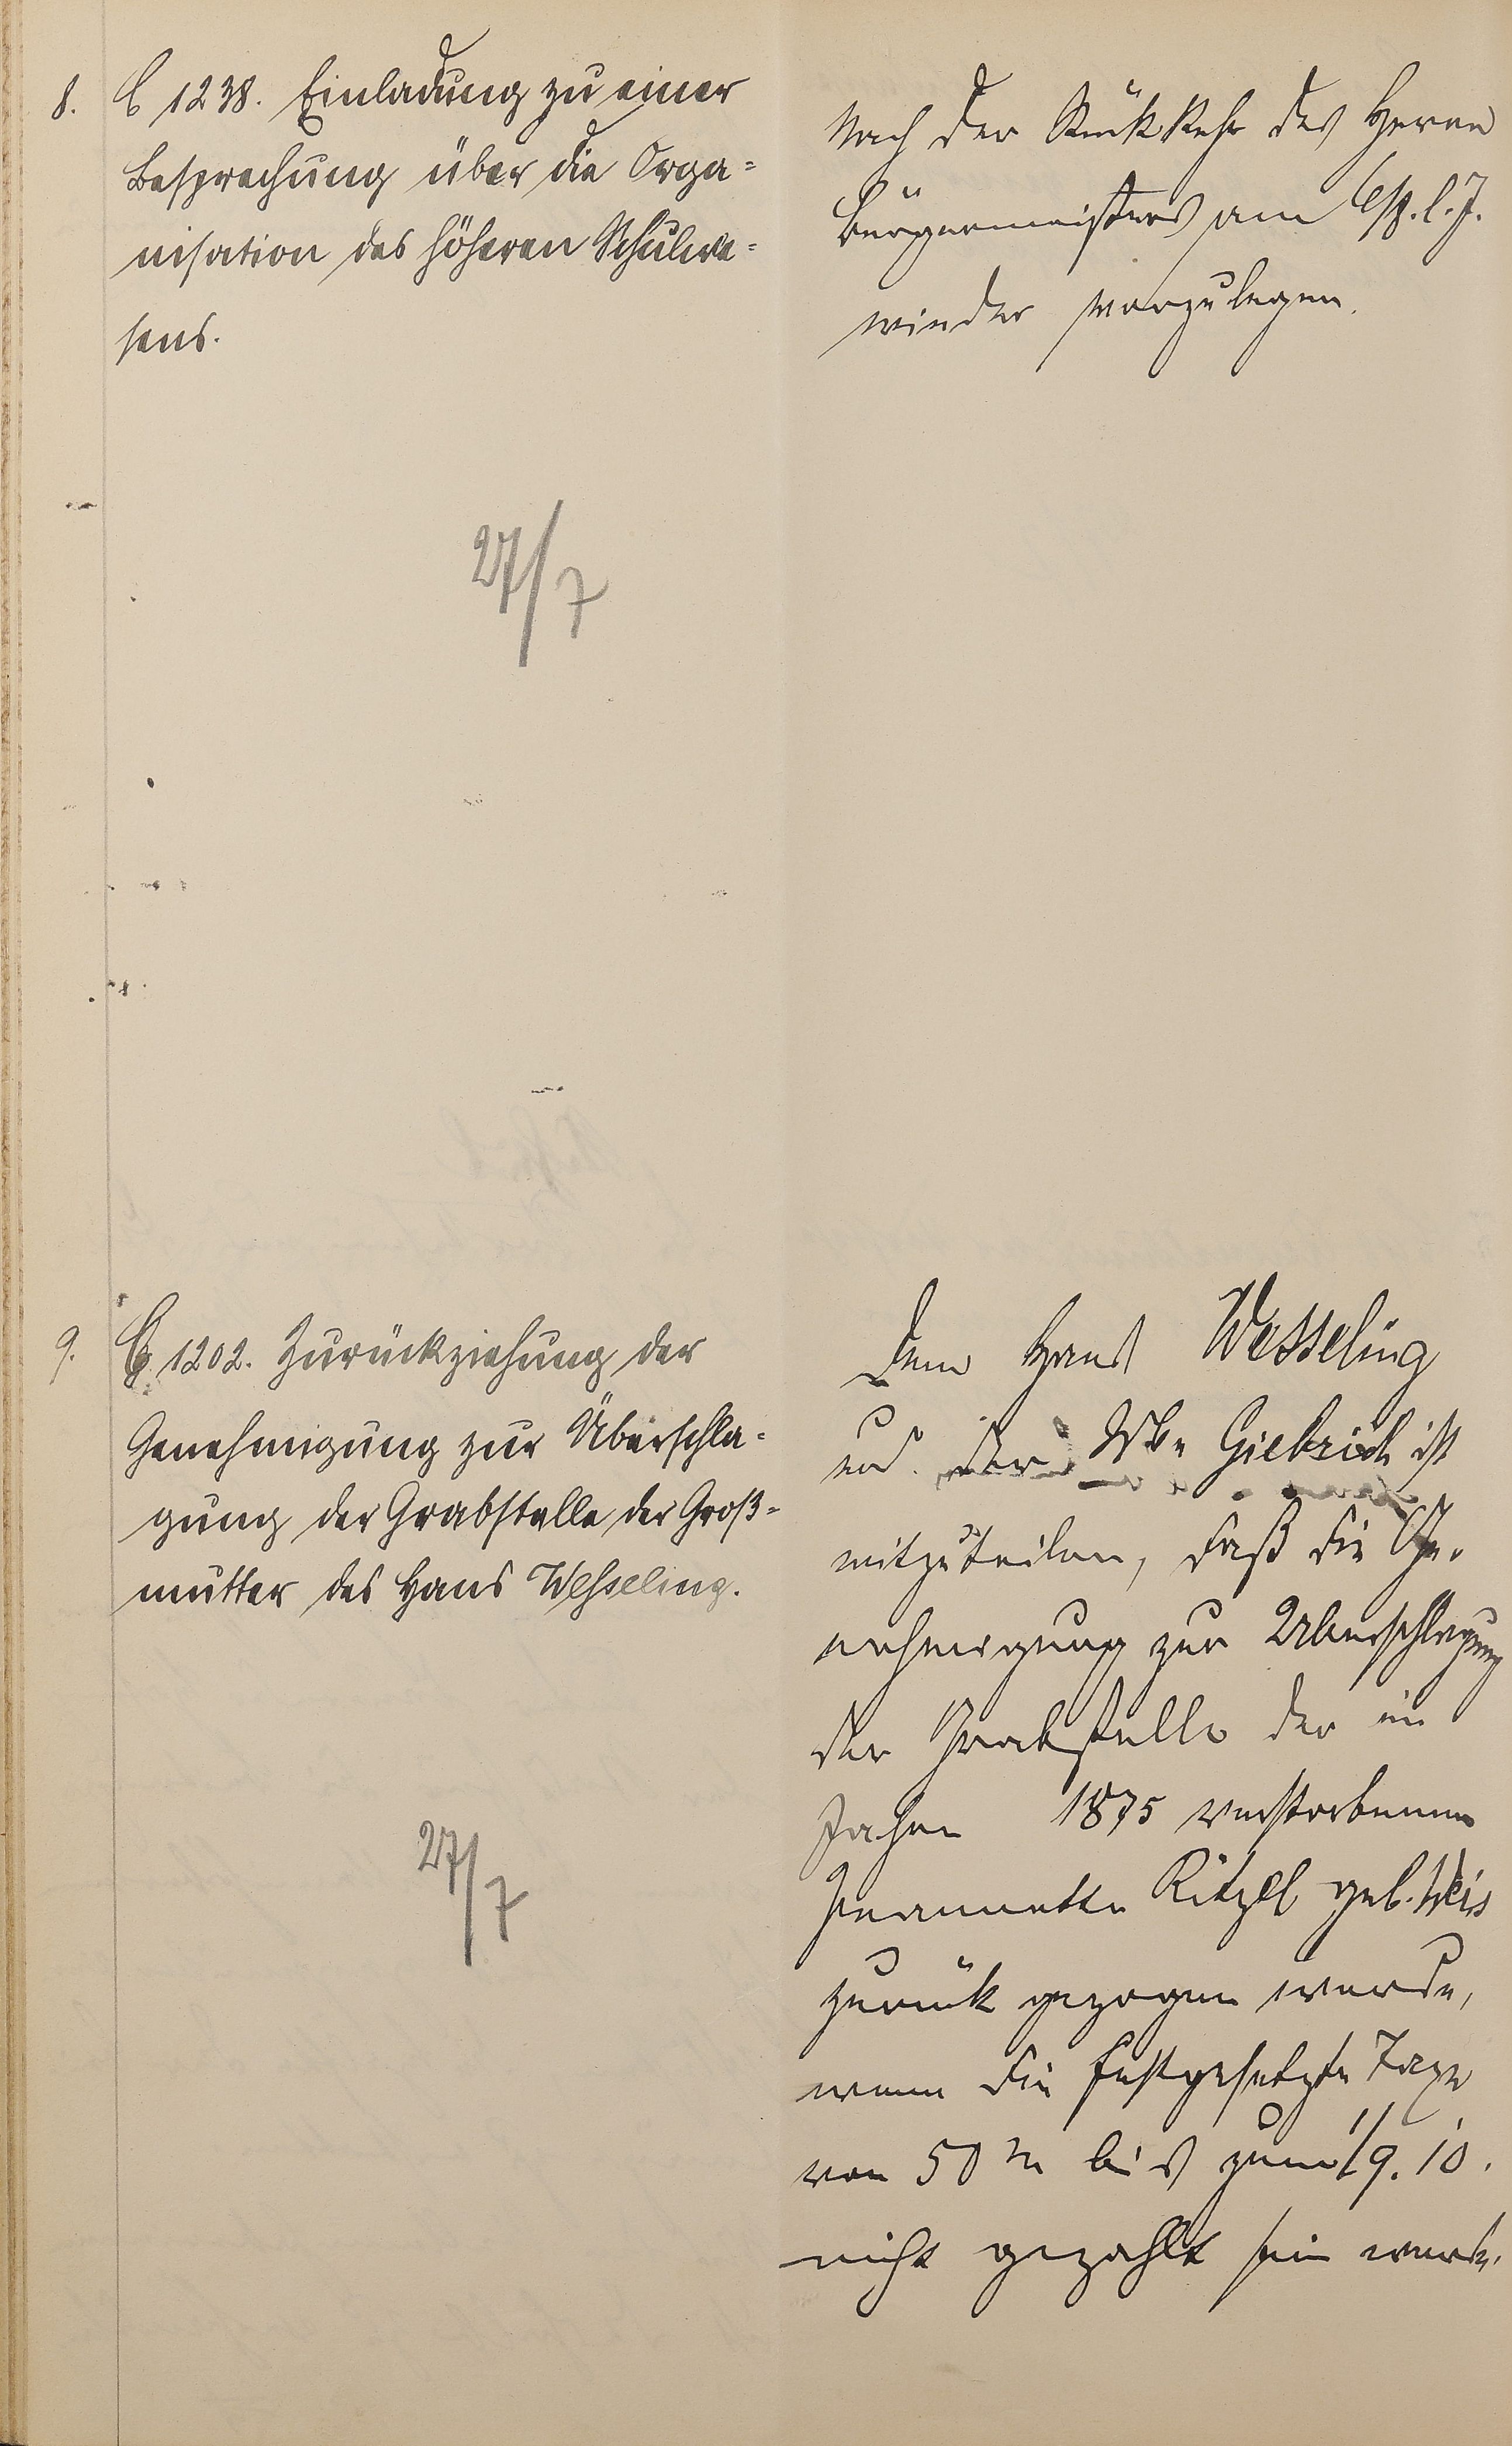 8. C 1238. Einladung zu einer
Besprechung über die Orga=
nisation des höheren Schulwe=
sens.
27/7
Nach der Rückkehr des Herrn
Bürgermeisters am l. J.
wieder vorzulegen.
9. C 1202. Zurückziehung der
Genehmigung zur Überschla=
gung der Grabstelle der Groß=
mutter des Hans Wesseling.
27/7
Dem Hans Wesseling
und der Wwe Giebrich ist
mitzuteilen, daß die Ge=
nehmigung zur Überschlagung
der Grabstelle der im
Jahre 1875 verstorbenen
Jeannette Ritzel geb. Weis
zurück gezogen werde,
wenn die festgesetzte Taxe
von 50 M bis zum 1/9. 10.
nicht gezahlt sein werde.